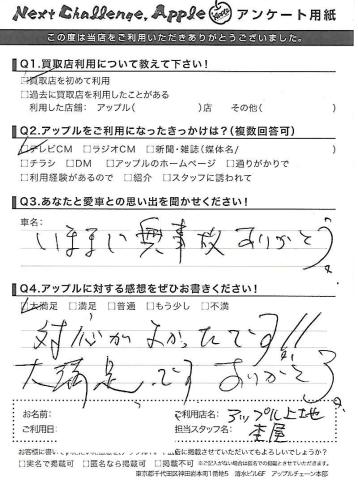 Next Challenge, Apple アンケート用紙
この度は当店をご利用いただきありがとうございました。
Q1.買取店利用について教えて下さい!
☑買取店を初めて利用
□過去に買取店を利用したことがある
利用した店舗: アップル( )店 その他( )
Q2.アップルをご利用になったきっかけは?(複数回答可)
☑テレビCM □ラジオCM □新聞・雑誌(媒体名/ )
□チラシ □DM □アップルのホームページ □通りがかりで
□利用経験があるので □紹介 □スタッフに誘われて
Q3.あなたと愛車との思い出を聞かせください!
車名:
いままで無事故ありがとう
Q4.アップルに対する感想をぜひお書きください!
☑大満足 □満足 □普通 □もう少し □不満
対応がよかったです!!
大満足です ありがとう
お名前: ご利用店名: アップル上地
ご利用日: 担当スタッフ名:
に掲載させていただいてもよろしいでしょうか?
□実名で掲載可 □匿名なら掲載可 □掲載不可 ※ご記入がない場合は匿名での掲載とさせていただきます。
東京都千代田区神田岩本町1番地5 清水ビル6F アップルチェーン本部